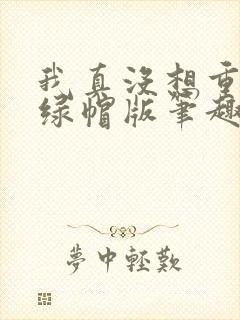 我真没想重
绿帽版笔趣
夢中輕歎